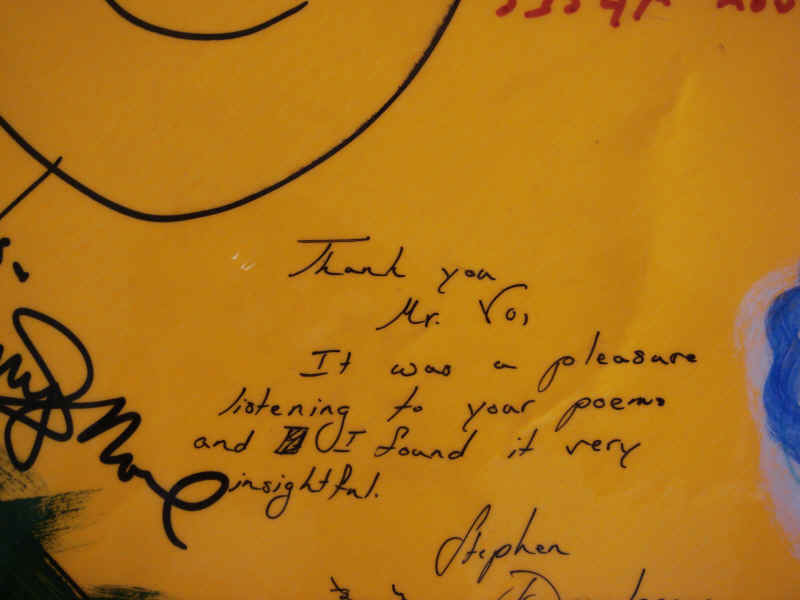 Thank you
Mr. Vo,
It was a pleasure
listening to your poems
and I found it very
insightful.
Stephen